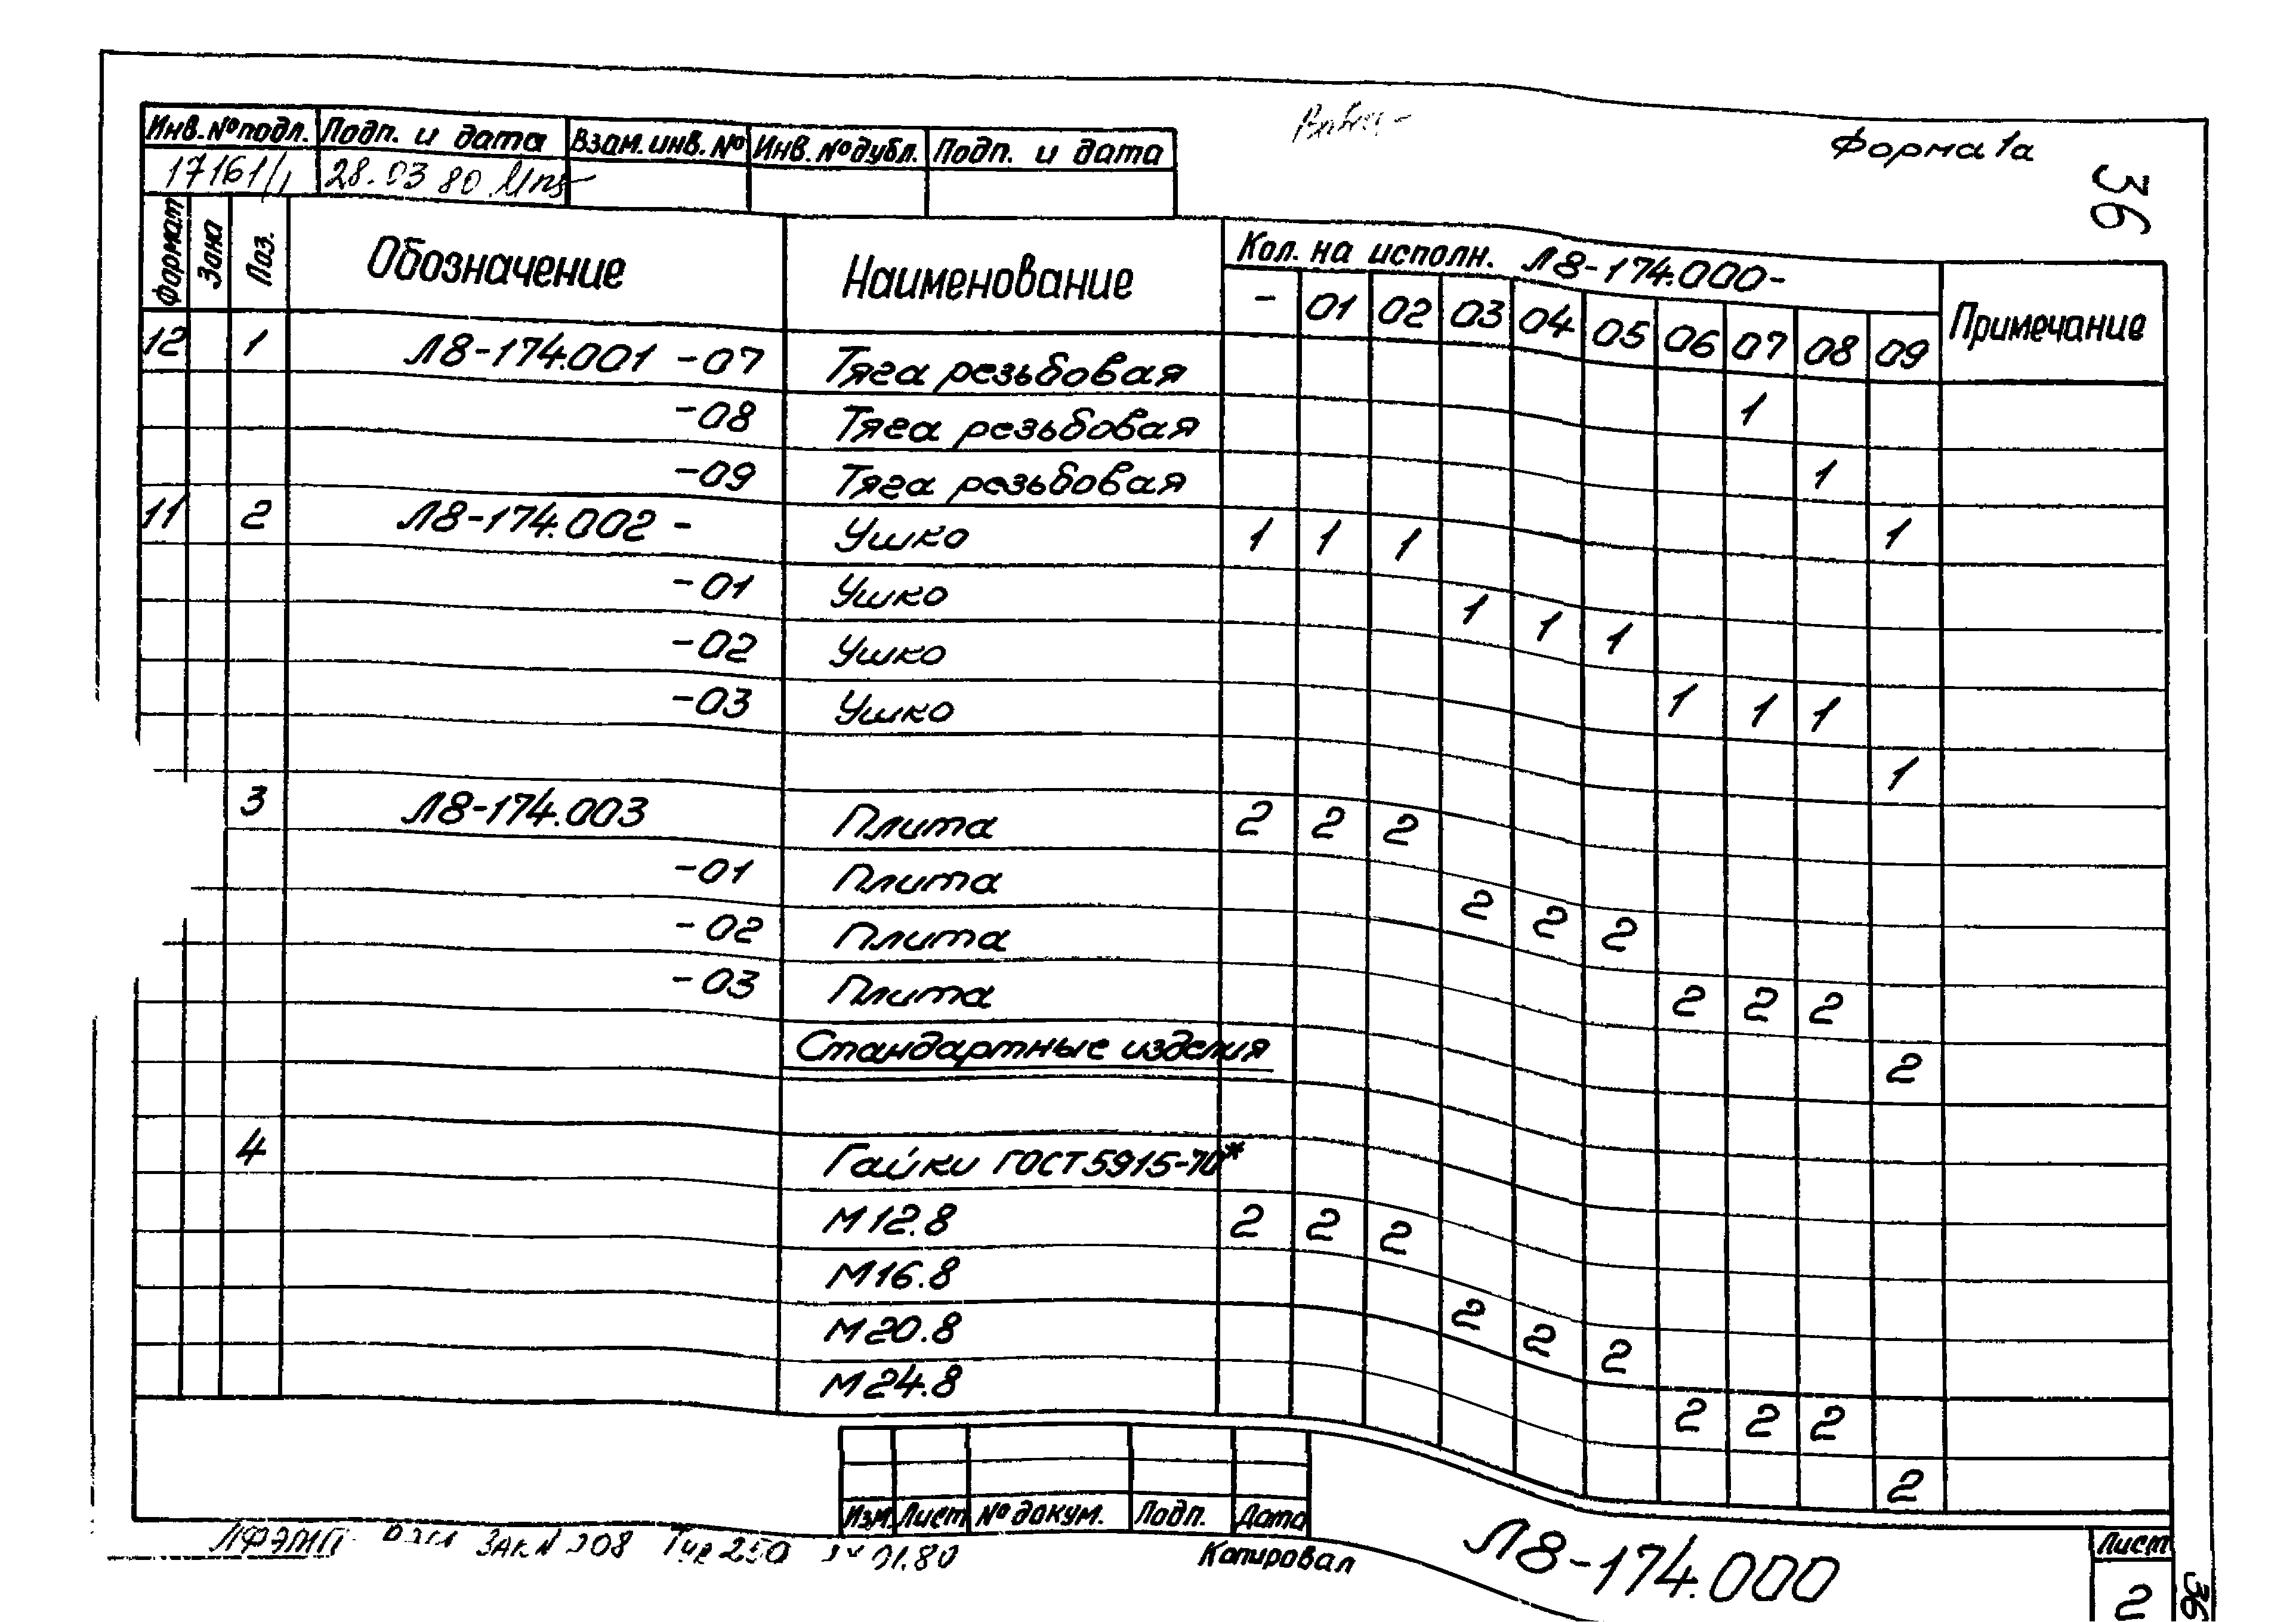 Форма 1а
36
Инв.№подл. Подп. и дата Взам.инв.№ Инв.№дубл. Подп. и дата
17161/1 28.03 80
Формат Зона Поз. Обозначение Наименование Кол. на исполн. Л8-174.000- Примечание
- 01 02 03 04 05 06 07 08 09
12 1 Л8-174.001 -07 Тяга резьбовая 1
-08 Тяга резьбовая 1
-09 Тяга резьбовая 1
11 2 Л8-174.002 - Ушко 1 1 1
-01 Ушко 1 1 1
-02 Ушко 1 1 1
-03 Ушко 1
3 Л8-174.003 Плита 2 2 2
-01 Плита 2 2 2
-02 Плита 2 2 2
-03 Плита 2
Стандартные изделия
4 Гайки ГОСТ 5915-70*
М12.8 2 2 2
М16.8 2 2 2
М20.8 2 2 2
М24.8 2
Изм. Лист № докум. Подп. Дата
Л8-174.000
Лист
2
Зак N 208 Тир 250 01.80
Копировал
36